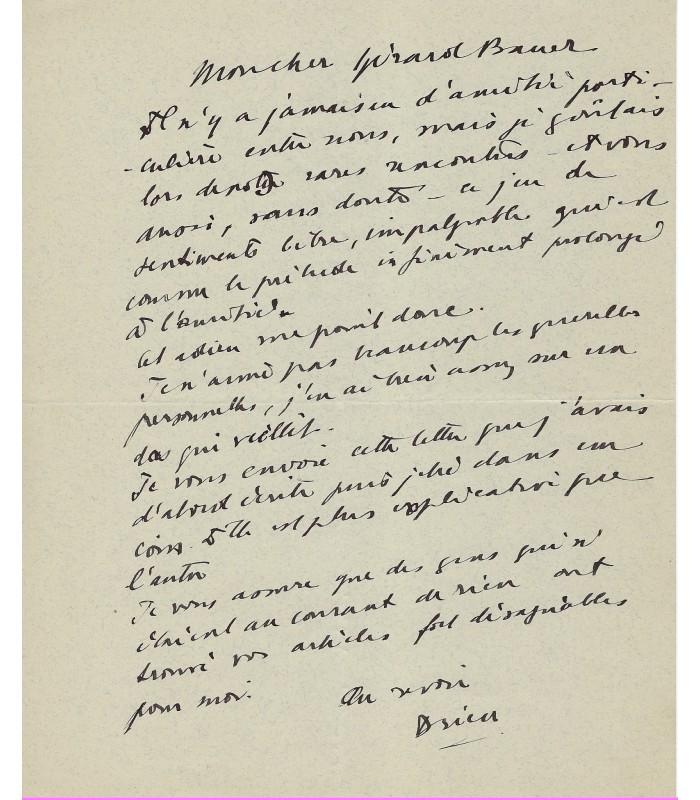 Mon cher Gérard Bauer
Il n'y a jamais eu d'amitié parti-
-culière entre nous, mais je goûtais
lors de nos rares rencontres - et vous
aussi, sans doute - ce jeu de
sentiments libre, impalpable qui est
comme le prélude infiniment prolongé
à l'amitié.
Cet adieu me point donc.
Je n'aime pas beaucoup les querelles
personnelles, j'en ai bien assez sur un
dos qui vieillit.
Je vous envoie cette lettre que j'avais
d'abord écrite puis jetée dans un
coin. Elle est plus explicative que
l'autre
Je vous assure que des gens qui n'
étaient au courant de rien ont
trouvé vos articles fort désagréables
pour moi.
Au revoir
Drieu